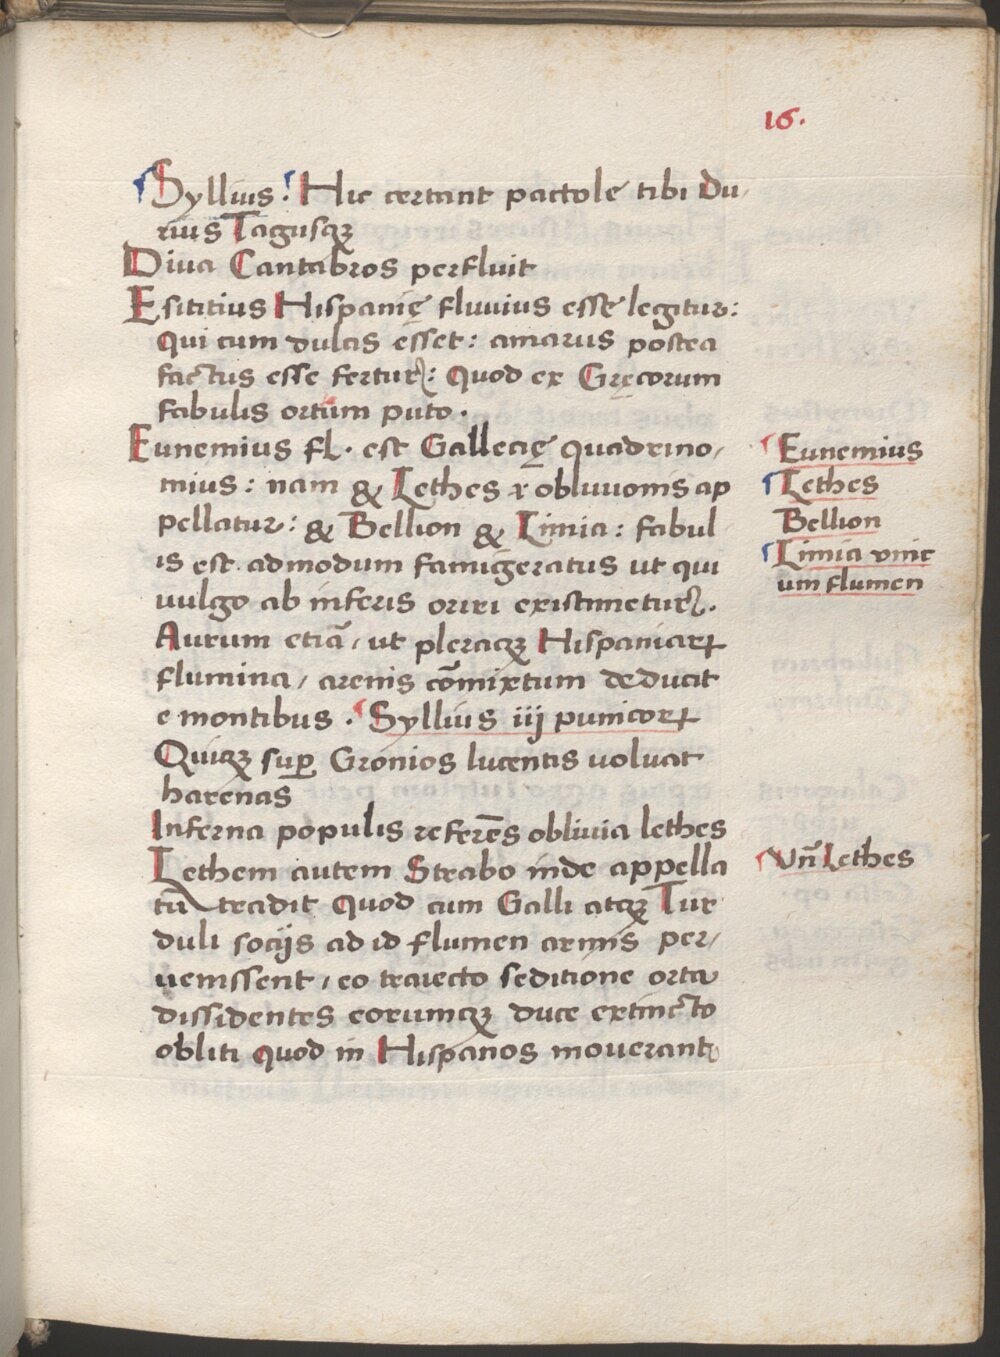 16.
Syllius. Hic certant pactole tibi Du-
rius Tagusqꝫ
Diua Cantabros perfluit
Esititius Hispanię fluuius esse legitur:
Qui cum dulcis esset: amarus postea
factus esse fertur: Quod ex Gręcorum
fabulis ortum puto.
Eunemius fl. est Gallecię quadrino,
mius: nam & Lethes ł obliuionis ap
pellatur: & Bellion & Limia: fabul
is est admodum famigeratus ut qui
uulgo ab inferis oriri existimetur.
Aurum etiā, ut pleraqꝫ Hispaniaꝝ
flumina, arenis cōmixtum deducit
e montibus. Syllius iij punicoꝝ
Quiqꝫ suꝑ Gronios lucentis uoluat
harenas
Inferna populis referēs obliuia lethes
Lethem autem Strabo inde appella
tū tradit Quod cum Galli atqꝫ Tur
duli socijs ad id flumen armis per,
uenissent, eo traiecto seditione orta
dissidentes eorumqꝫ duce extincto
obliti quod in Hispanos mouerant
Eunemius
Lethes
Bellion
Limia vnic
um flumen
Vñ Lethes